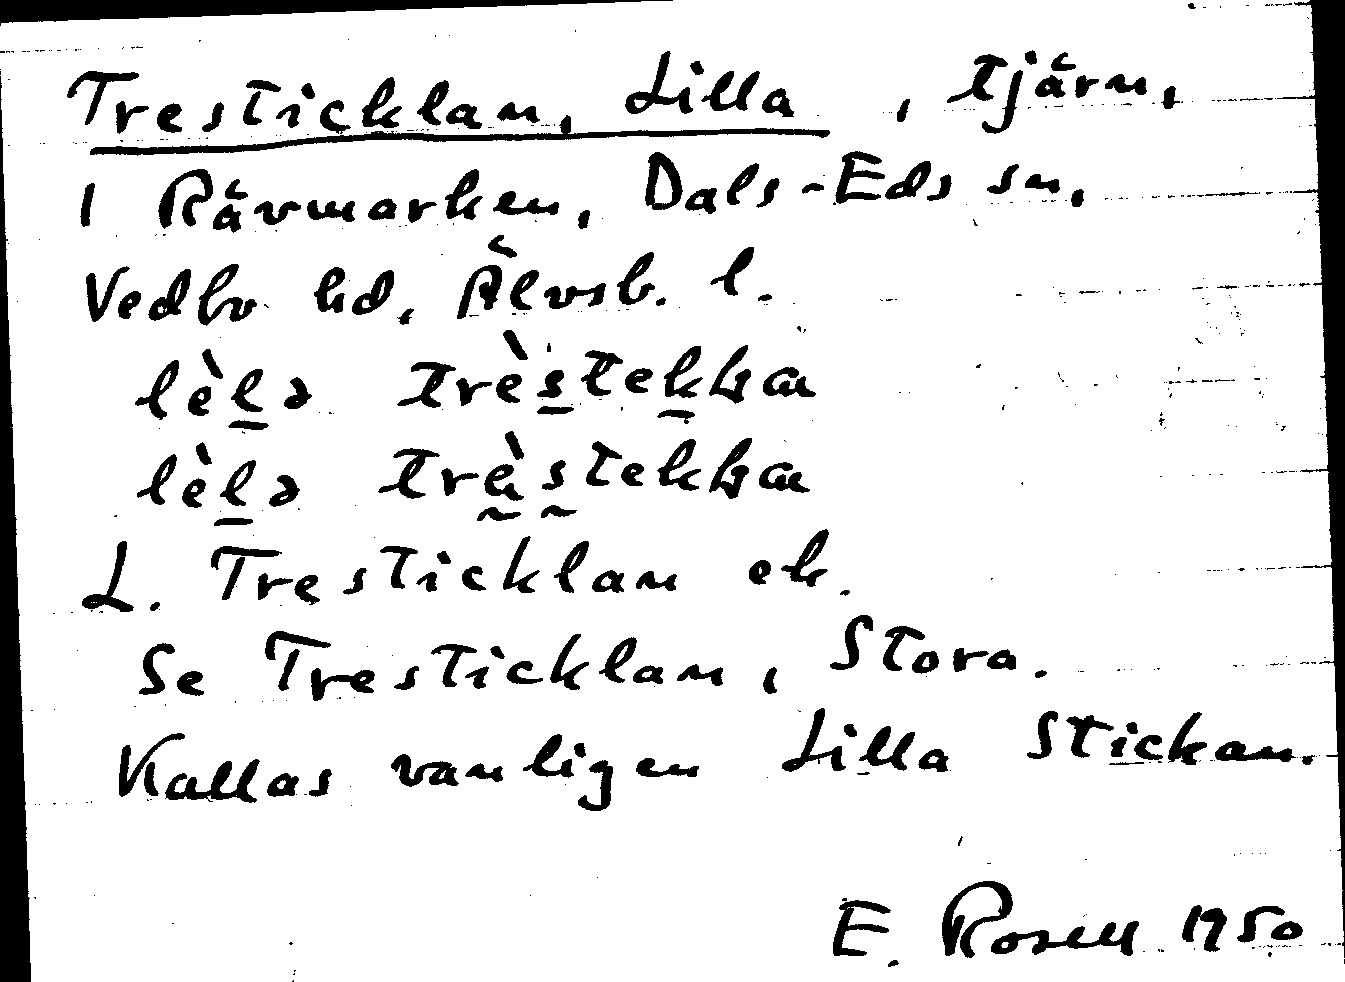 Tresticklan, Lilla, tjärn,
i Råvmarken, Dals-Eds sn,
Vedbo hd, Älvsb. l.
lèlə
lèlə
L. Tresticklan ek.
Se Tresticklan, Stora.
Kallas vanligen Lilla Stickan.
E. Rosell 1950